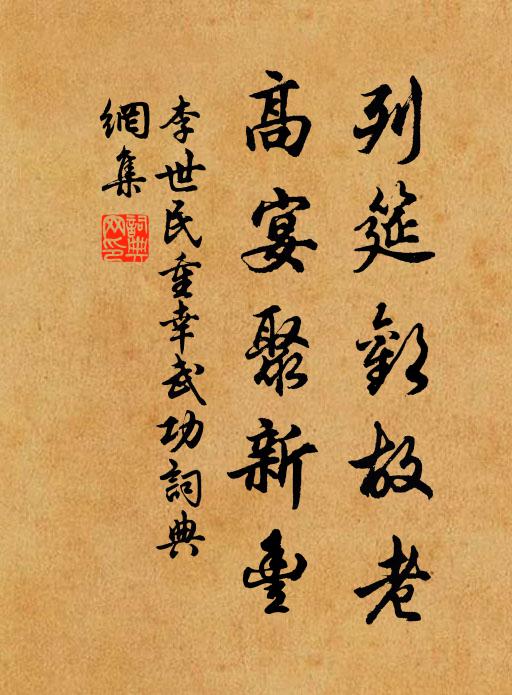 列筵歡故老
高宴聚新豐
李世民重幸武功詞典
網集
詞典網印